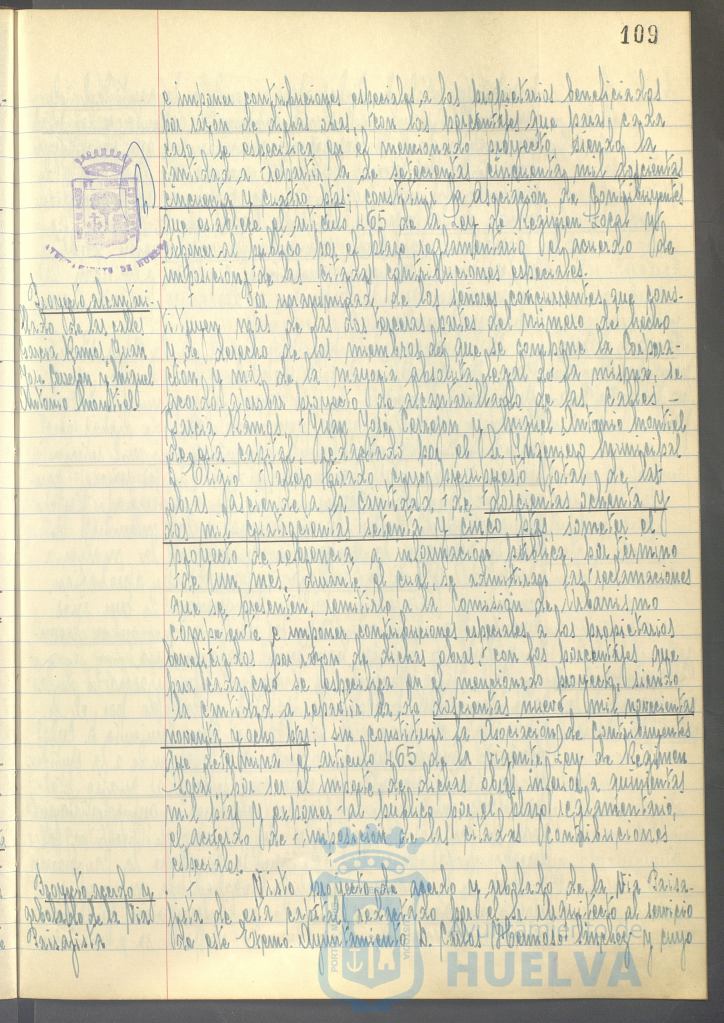 109
e imponer contribuciones especiales a los propietarios beneficiados
por razón de dichas obras, con los porcentajes que para cada
caso se especifica en el mencionado proyecto, siendo la
cantidad a repartir la de setecientas cincuenta mil doscientas
cincuenta y cuatro pts; constituir la Asociación de Contribuyentes
que establece el artículo 465 de la Ley de Régimen Local y
exponer al público por el plazo reglamentario el acuerdo de
imposición de las citadas contribuciones especiales.
AYUNTAMIENTO DE HUELVA
Proyecto alcantari-
llado de las calles
García Ramos, Juan
José Cerrejon y Miguel
Antonio Montiel
Por unanimidad de los señores concurrentes, que cons-
tituyen más de las dos terceras partes del número de hecho
y de derecho de los miembros de que se compone la Corpora-
ción y más de la mayoria absoluta legal de la misma, se
acordó aprobar proyecto de alcantarillado de las calles -
García Ramos, Juan José Cerrejon y Miguel Antonio Montiel
de esta capital, redactado por el Sr. Ingeniero Municipal
D. Eligio Vallejo, cuyo presupuesto total de las
obras asciende a la cantidad de doscientas ochenta y
dos mil cuatrocientas setenta y cinco pts someter el
proyecto de referencia a información pública, por término
de un mes, durante el cual, se admitirán las reclamaciones
que se presenten, remitirlo a la Comisión de Urbanismo
competente e imponer contribuciones especiales a los propietarios
beneficiados por razón de dichas obras, con los porcentajes que
para cada caso se especifica en el mencionado proyecto, siendo
la cantidad a repartir la de doscientas nueve mil novecientas
noventa y ocho pts; sin constituir la Asociación de Contribuyentes
que determina el artículo 465 de la vigente Ley de Régimen
Local, por ser el importe de dichas obras inferior a quinientas
mil ptas y exponer al público por el plazo reglamentario,
el acuerdo de imposición de las citadas contribuciones
especiales.
Proyecto acerado y
arbolado de la Vía
Paisajista
Visto proyecto de acerado y arbolado de la Vía Paisa-
jista de esta capital, redactado por el Sr. Arquitecto al servicio
de este Excmo. Ayuntamiento D. Carlos Hermoso Sanchez y cuyo
Ayuntamiento de
HUELVA